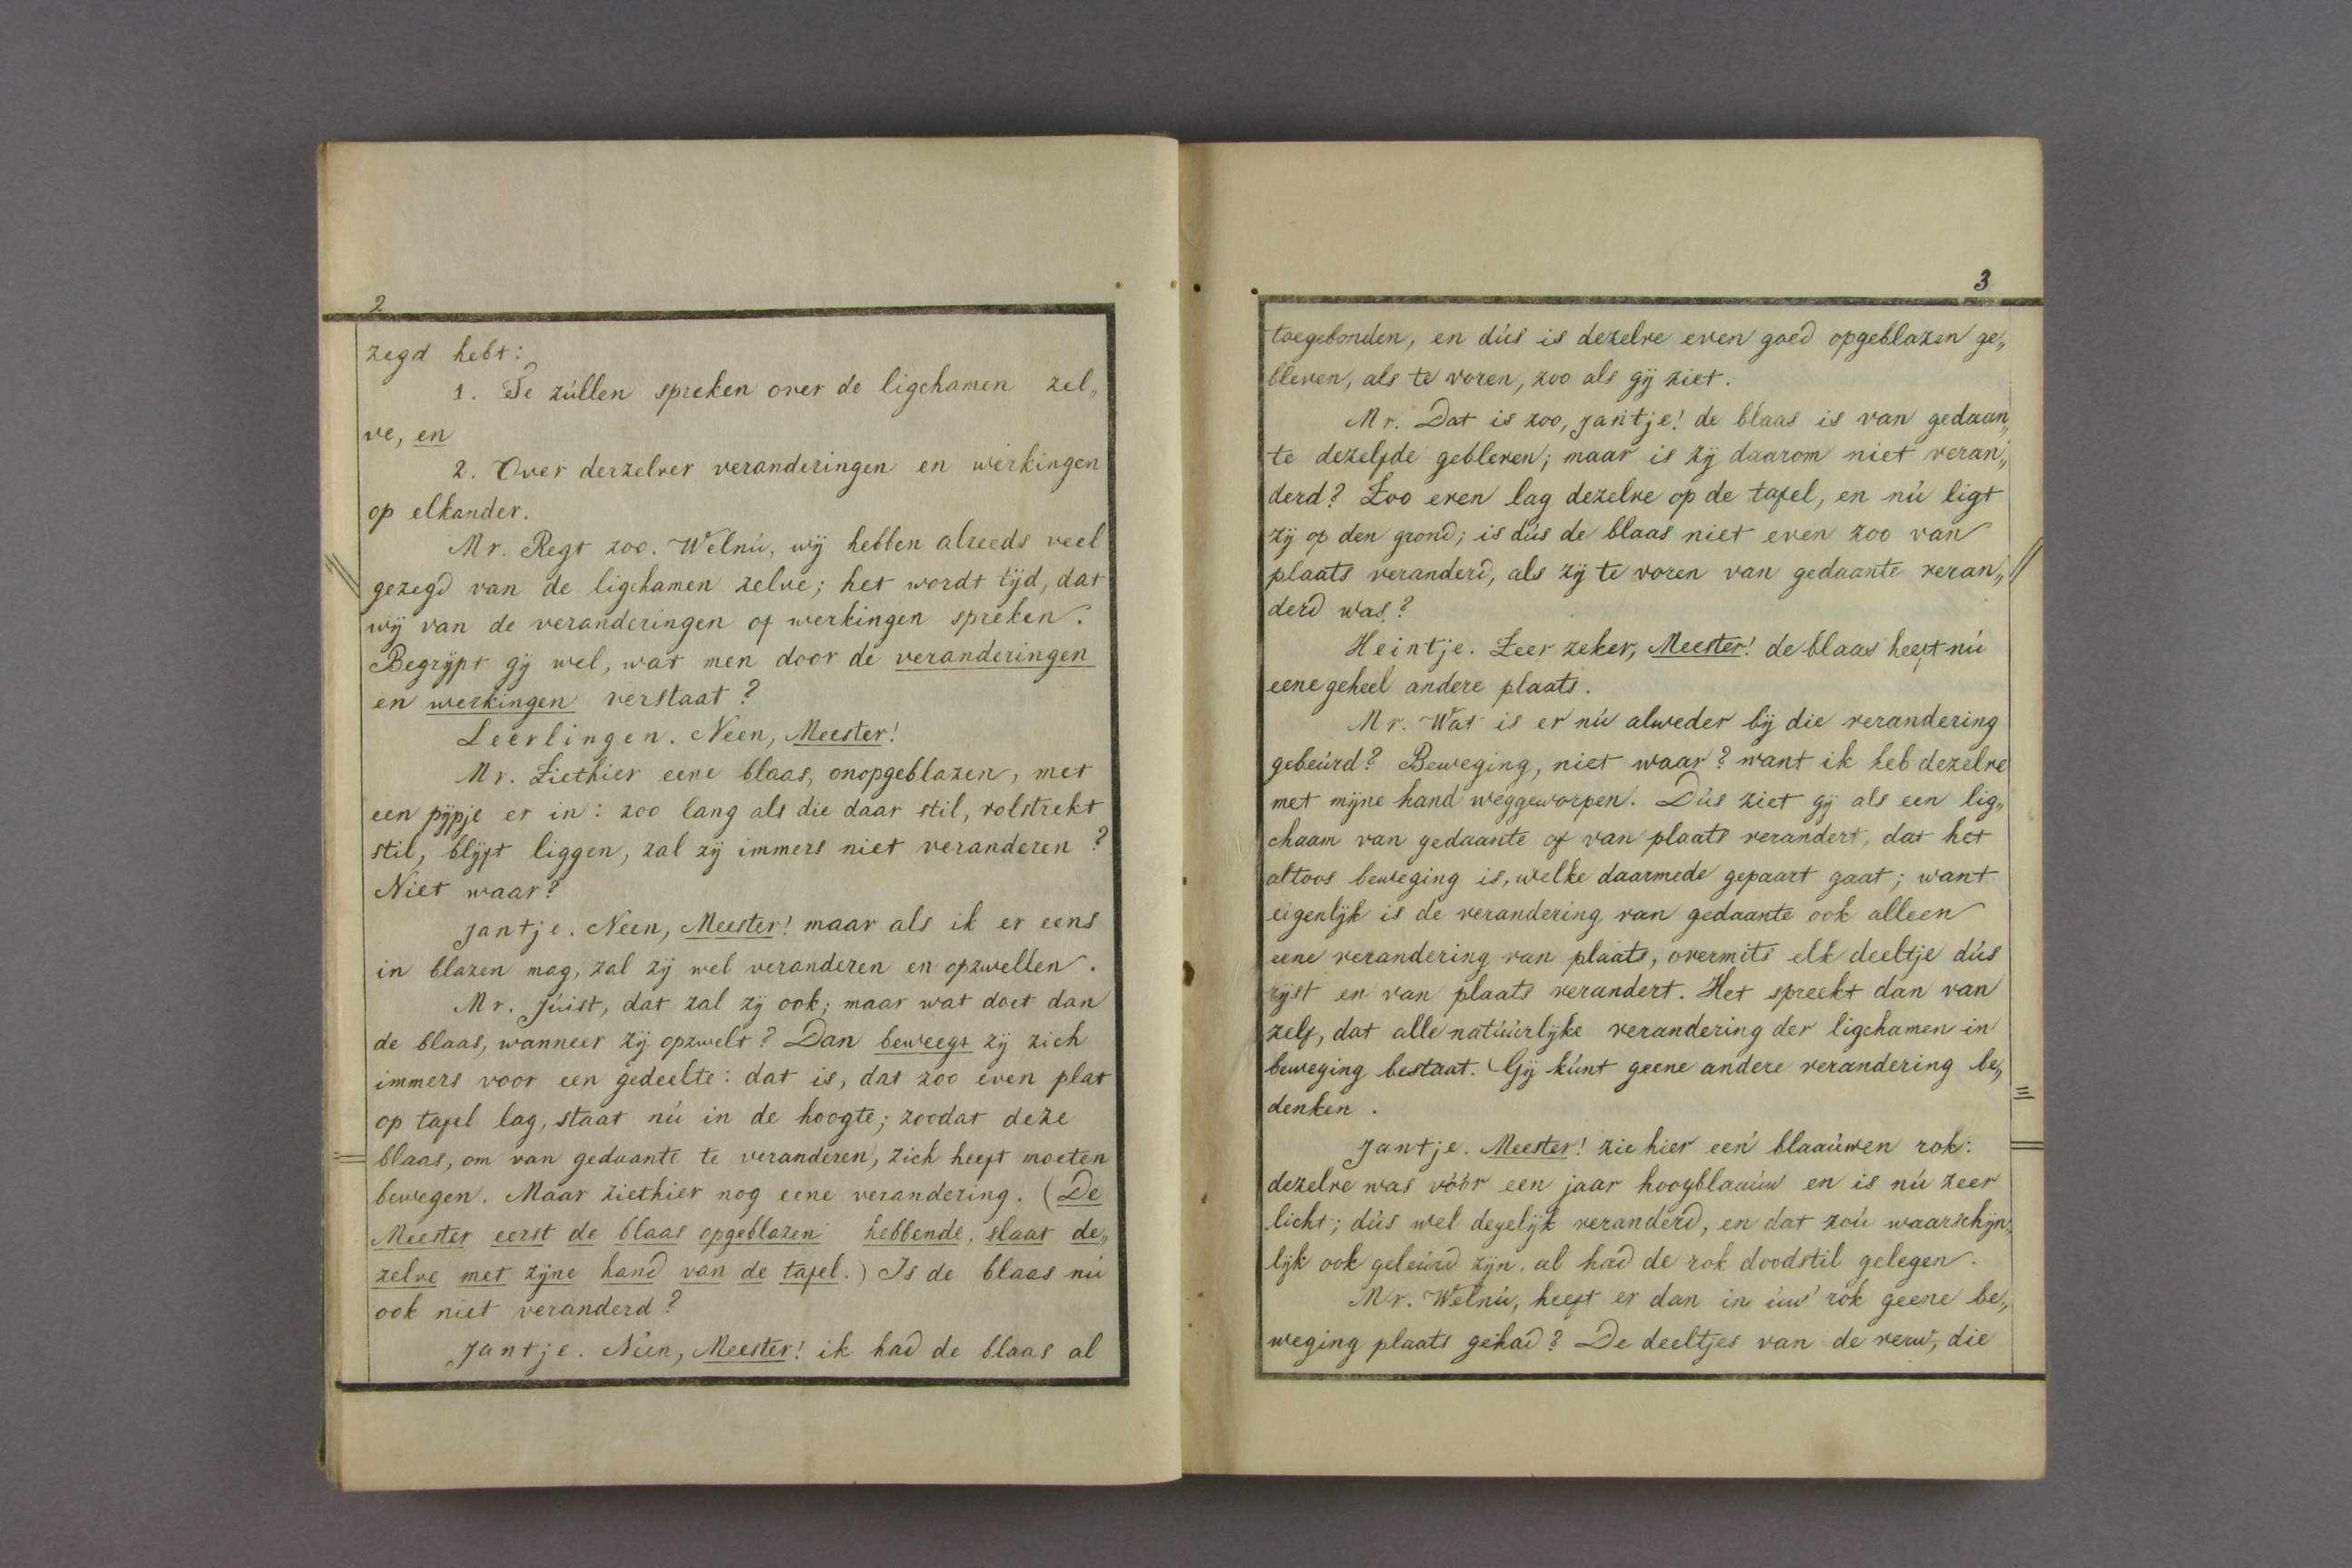 2
zegd hebt:
1. Te zúllen spreken over de ligchamen zel„
ve, en
2. Over derzelver veranderingen en werkingen
op elkander.
Mr. Regt zoo. Welnú, wij hebben alreeds veel
gezegd van de ligchamen zelve; het wordt tijd, dat
wij van de veranderingen of werkingen spreken.
Begrijpt gij wel, wat men door de veranderingen
en werkingen verstaat?
Leerlingen. Neen, Meester!
Mr. Ziethier eene blaas, onopgeblazen, met
een pijpje er in: zoo lang als die daar stil, volstrekt
stil, blijft liggen, zal zij immers niet veranderen?
Niet waar?
Jantje. Neen, Meester! maar als ik er eens
in blazen mag, zal zij wel veranderen en opzwellen.
Mr. Júist, dat zal zij ook; maar wat doet dan
de blaas, wanneer zij opzwelt? Dan beweegt zij zich
immers voor een gedeelte: dat is, dat zoo even plat
op tafel lag, staat nú in de hoogte; zoodat deze
blaas, om van gedaante te veranderen, zich heeft moeten
bewegen. Maar ziethier nog eene verandering. (De
Meester eerst de blaas opgeblazen hebbende, slaat de„
zelve met zijne hand van de tafel.) Is de blaas nú
ook niet veranderd?
Jantje. Neen, Meester! ik had de blaas al
3
toegebonden, en dús is dezelve even goed opgeblazen ge„
bleven, als te voren, zoo als gij ziet.
Mr. Dat is zoo, Jantje! de blaas is van gedaan„
te dezelfde gebleven; maar is zij daarom niet veran„
derd? Zoo even lag dezelve op de tafel, en nú ligt
zij op den grond; is dús de blaas niet even zoo van
plaats veranderd, als zij te voren van gedaante veran„
derd was?
Heintje. Zeer zeker, Meester! de blaas heeft nú
eene geheel andere plaats.
Mr. Wat is er nú alweder bij die verandering
gebeúrd? Beweging, niet waar? want ik heb dezelve
met mijne hand weggeworpen. Dús ziet gij als een lig„
chaam van gedaante of van plaats verandert, dat het
altoos beweging is, welke daarmede gepaart gaat; want
eigenlijk is de verandering van gedaante ook alleen
eene verandering van plaats, overmits elk deeltje dús
rijst en van plaats verandert. Het spreekt dan van
zelf, dat alle natúúrlijke verandering der ligchamen in
beweging bestaat. Gij kúnt geene andere verandering be„
denken.
Jantje. Meester! zie hier een' blaaúwen rok:
dezelve was vóór een jaar hoogblaaúw en is nú zeer
licht; dús wel degelijk veranderd, en dat zoú waarschijn„
lijk ook gebeúrd zijn, al had de rok doodstil gelegen.
Mr. Welnú, heeft er dan in úw' rok geene be„
weging plaats gehad? De deeltjes van de verw, die